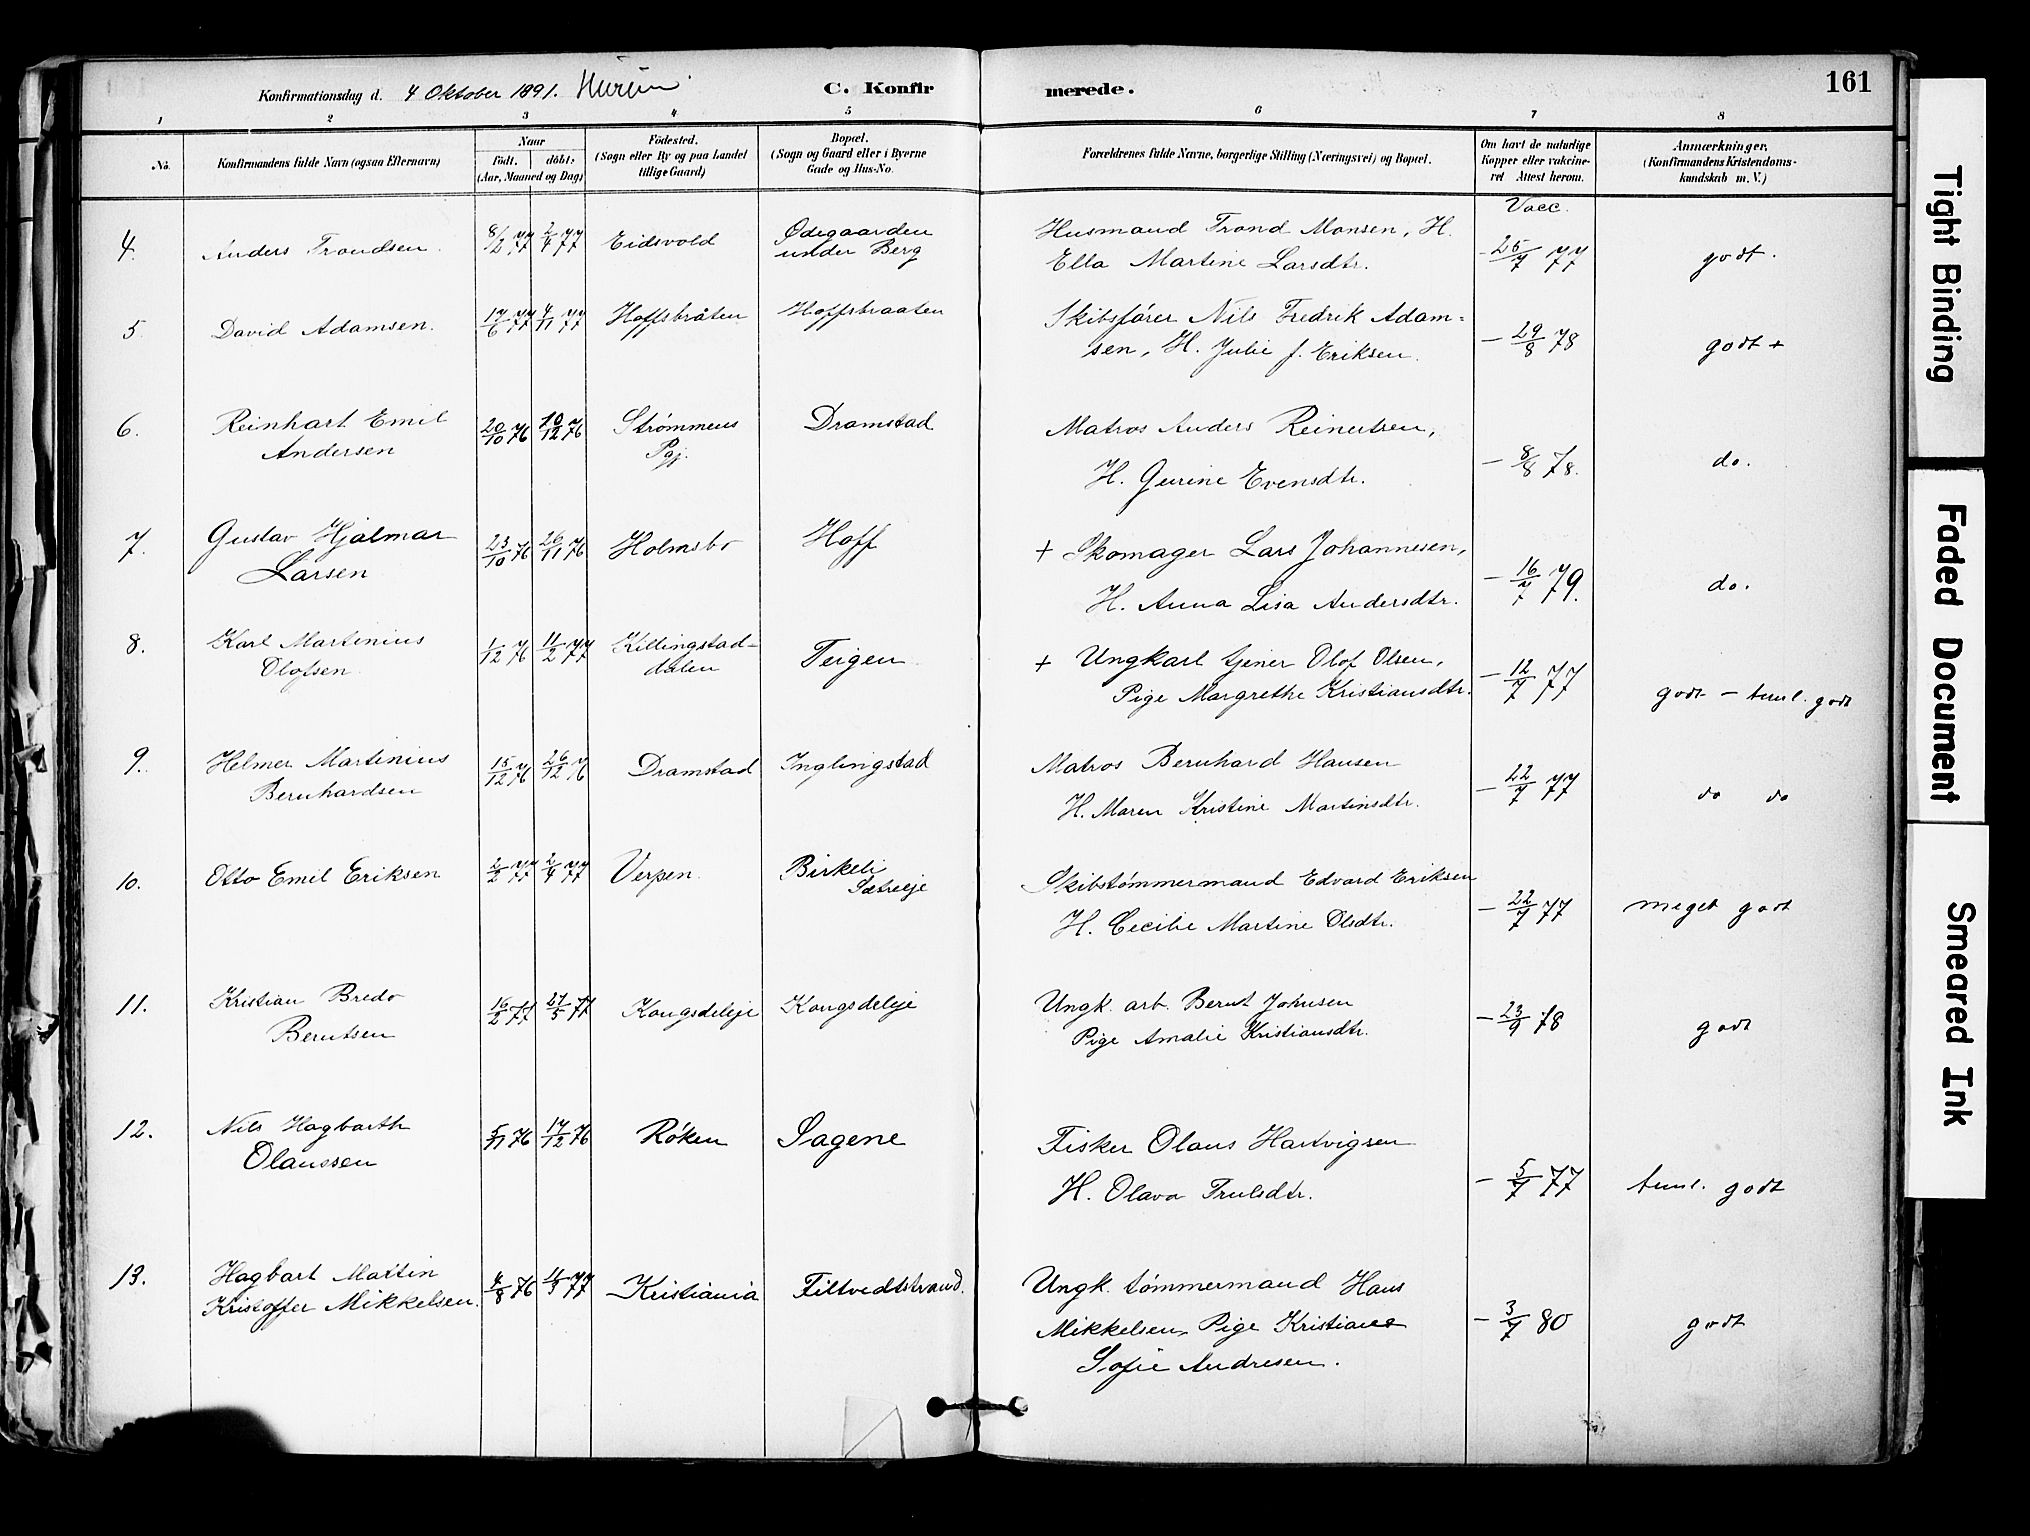 Konfirmationsdag d. 4 Oktober 1891. Hurum
C. Konfirmerede.
161
1 2 3 4 5 6 7 8
No.
Konfirmandens fulde Navn (ogsaa Efternavn)
Naar
født. døbt;
(Aar, Maaned og Dag)
Fødested.
(Sogn eller By og paa Landet
tillige Gaard)
Bopæl.
(Sogn og Gaard eller i Byerne
Gade og Hus-No.
Forældrenes fulde Navne, borgerlige Stilling (Næringsvei) og Bopæl.
Om havt de naturlige
Kopper eller vakcine-
ret Attest herom.
Anmærkninger.
(Konfirmandens Kristendoms-
kundskab m. V.)
Vacc.
4. Anders Trondsen. 8/2 77 2/4 77 Eidsvold Ødegaarden
under Berg
Husmand Trond Monsen, H.
Ella Martine Larsdtr.
- 25/7 77 godt.
5. David Adamsen. 17/6 77 4/11 77 Hoffsbråten Hoffsbraaten
Skibsfører Nils Fredrik Adam=
sen, H. Julie f. Eriksen.
- 29/8 78 godt +
6. Reinhart Emil
Andersen
20/10 76 10/12 76 Strømmens
Pgj.
Dramstad
Matros Anders Reinertsen,
H. Gurine Evensdtr.
- 8/8 78. do.
7. Gustav Hjalmar
Larsen
23/10 76 26/11 76 Holmsbo Hoff
+ Skomager Lars Johannesen,
H. Anna Lisa Andersdtr.
- 16/7 79. do.
8. Karl Martinius
Olofsen
1/12 76 11/2 77 Killingstad-
dalen
Teigen
+ Ungkarl tjener Olof Olsen,
Pige Margrethe Kristiansdtr.
- 12/7 77 godt - teml. godt
9. Helmer Martinius
Bernhardsen
15/12 76 26/12 76 Dramstad Inglingstad
Matros Bernhard Hansen
H. Maren Kristine Martinsdtr.
- 22/7 77 do do
10. Otto Emil Eriksen 2/2 77 2/4 77 Verpen. Birkeli
Sætreeje
Skibstømmermand Edvard Eriksen
H. Cecilie Martine Olsdtr.
- 22/7 77 meget godt
11. Kristian Bredo
Berntsen
16/2 77 27/5 77 Kongsdeleje Kongsdeleje
Ungk. arb. Bernt Johnsen
Pige Amalie Kristiansdtr.
- 23/9 78 godt
12. Nils Hagbarth
Olaussen
5/11 76 17/12 76 Røken Sagene
Fisker Olaus Hartvigsen
H. Olava Trulsdtr.
- 5/7 77 teml. godt
13. Hagbart Martin
Kristoffer Mikkelsen.
4/8 76 77 Kristiania Filtvedtstrand.
Ungk. tømmermand Hans
Mikkelsen, Pige Kristiane
Sofie Andresen.
- 3/7 80 godt
Tight Binding
Faded Document
Smeared Ink